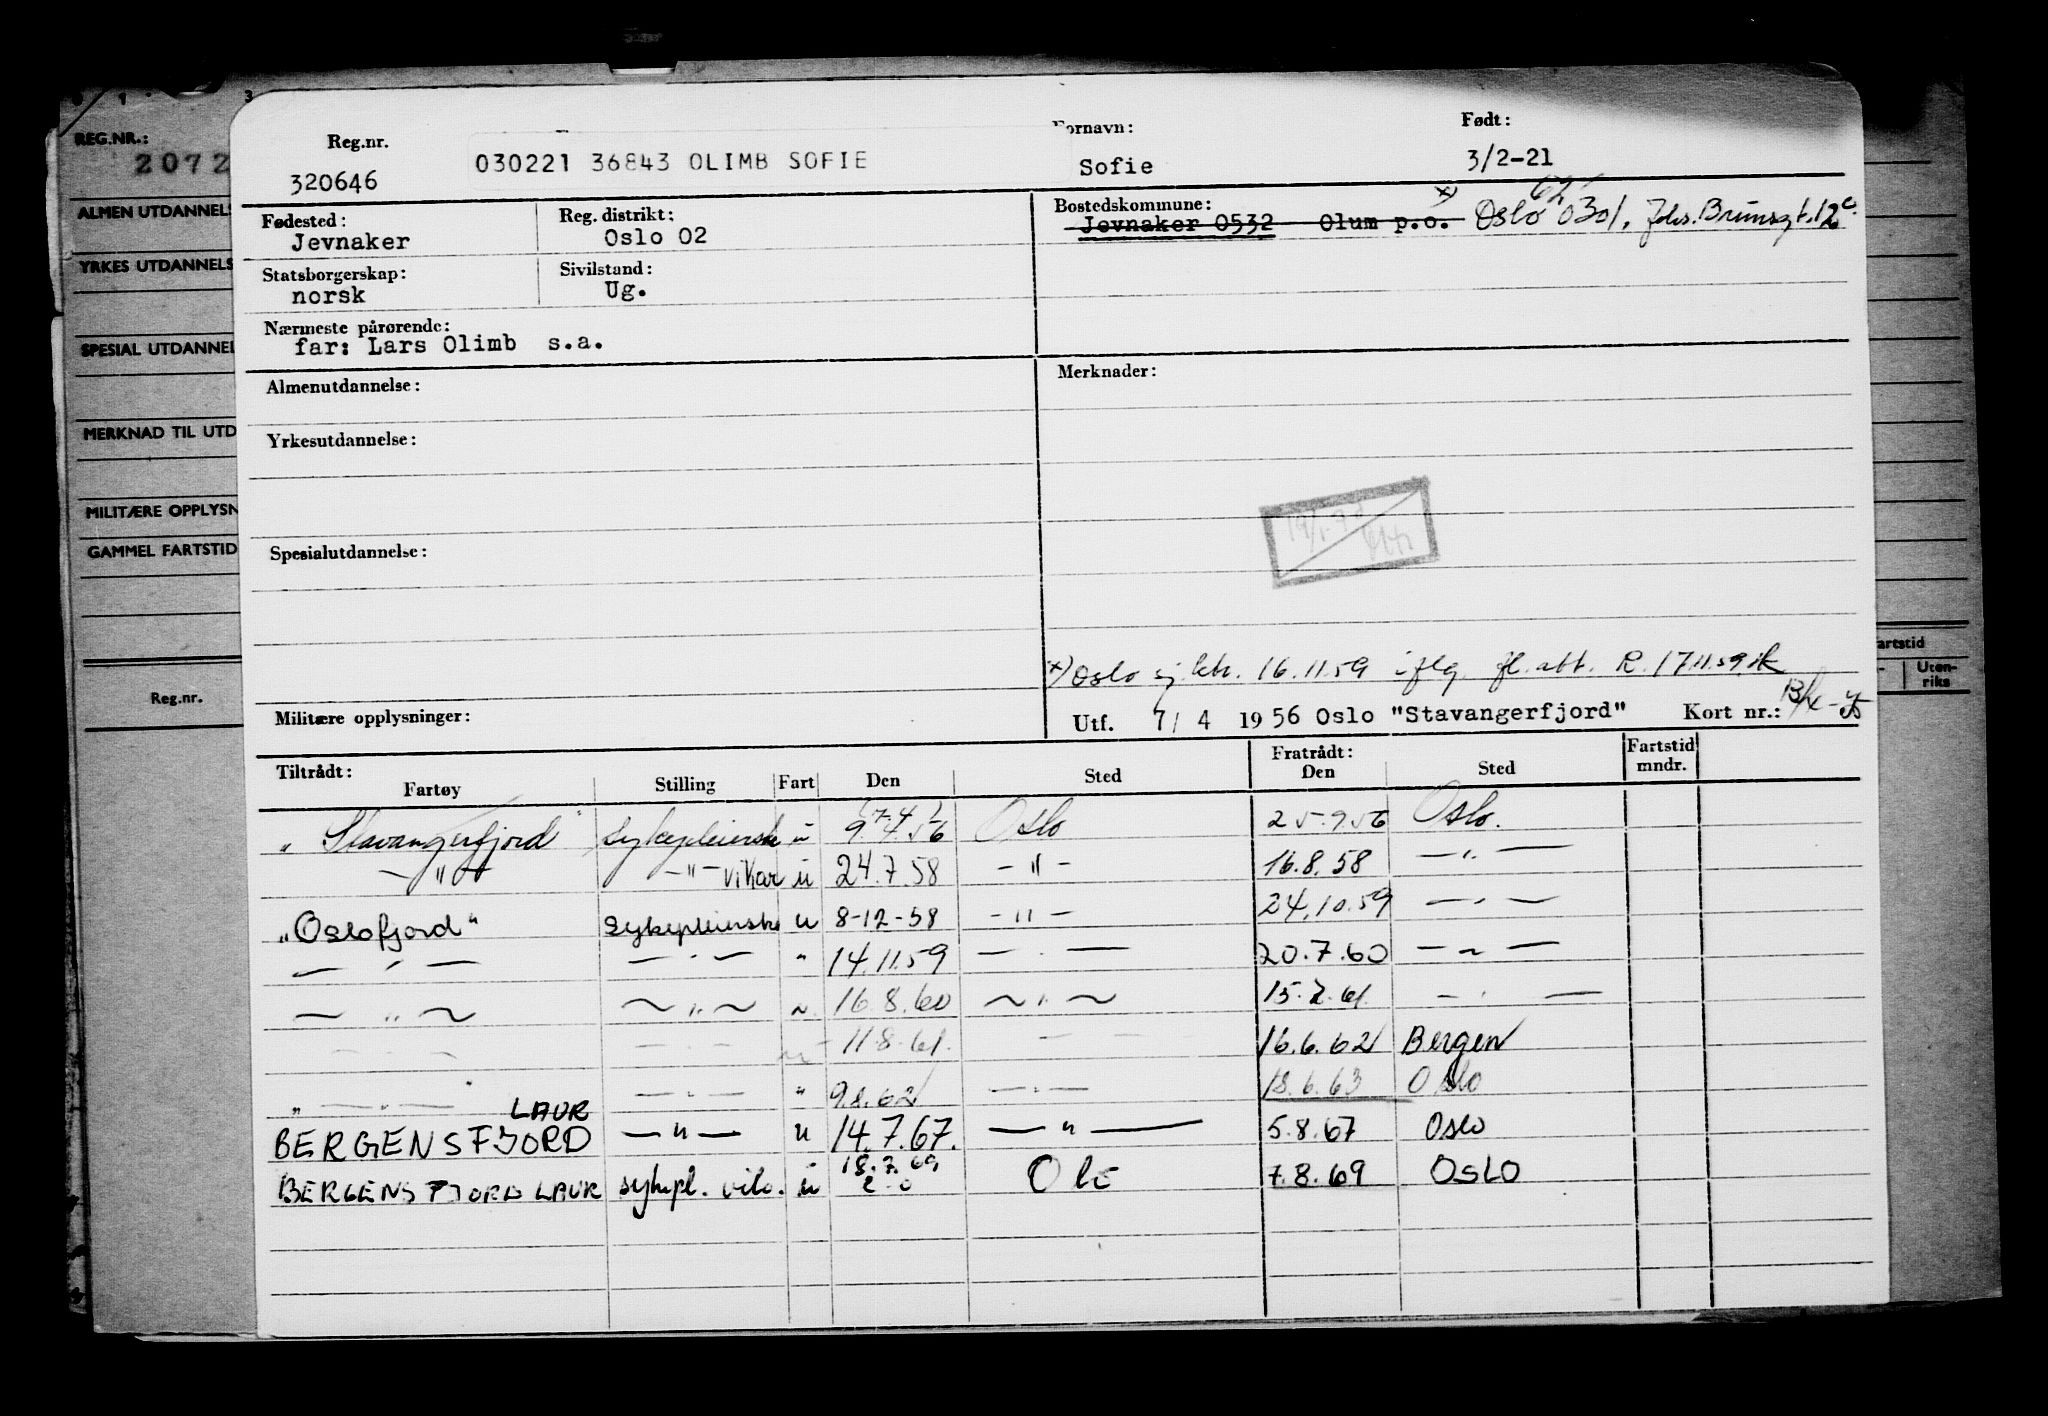 3
REG.NR.:
2072
ALMEN UTDANNELS
YRKES UTDANNELS
SPESIAL UTDANNEL
MERKNAD TIL UTD
MILITÆRE OPPLYSN
GAMMEL FARTSTID
Reg.nr.
artstid
Uten-
riks
Reg.nr. Fornavn: Født:
320646 030221 36843 OLIMB SOFIE Sofie 3/2-21
Fødested: Reg. distrikt: Bostedskommune: x) 62
Jevnaker Oslo 02 Jevnaker 0532 Olum p.o. Oslo 0301, Johs. Brunsgt. 12 c.
Statsborgerskap: Sivilstand:
norsk Ug.
Nærmeste pårørende:
far: Lars Olimb s.a.
Almenutdannelse: Merknader:
Yrkesutdannelse:
Spesialutdannelse:
x) Oslo sj. ktr. 16.11.59 iflg. fl. att. R. 17.11.59.
Militære opplysninger: Utf. 7/ 4 1956 Oslo "Stavangerfjord" Kort nr.:
Tiltrådt: Fratrådt: Fartstid
Fartøy Stilling Fart Den Sted Den Sted mndr.
"Stavangerfjord" Sykepleierske u 9.4.56 Oslo 25.9.56 Oslo.
— " — — " — vikar u 24.7.58 — " — 16.8.58 — " —
"Oslofjord" Sykepleierske u 8-12-58 — " — 24.10.59 — " —
— " — — " — " 14.11.59 — " — 20.7.60 — " —
— " — — " — " 16.8.60 — " — 15.2.61. — " —
— " — — " — " 11.8.61. — — 16.6.62 Bergen
" — " — — " — " 9.8.62 — " — 18.6.63 Oslo
LAUR
BERGENSFJORD — " — u 14.7.67. — " — 5.8.67 Oslo
BERGENSFJORD LAUR sykepl. vik. u 18.7.69 7.8.69 OSLO